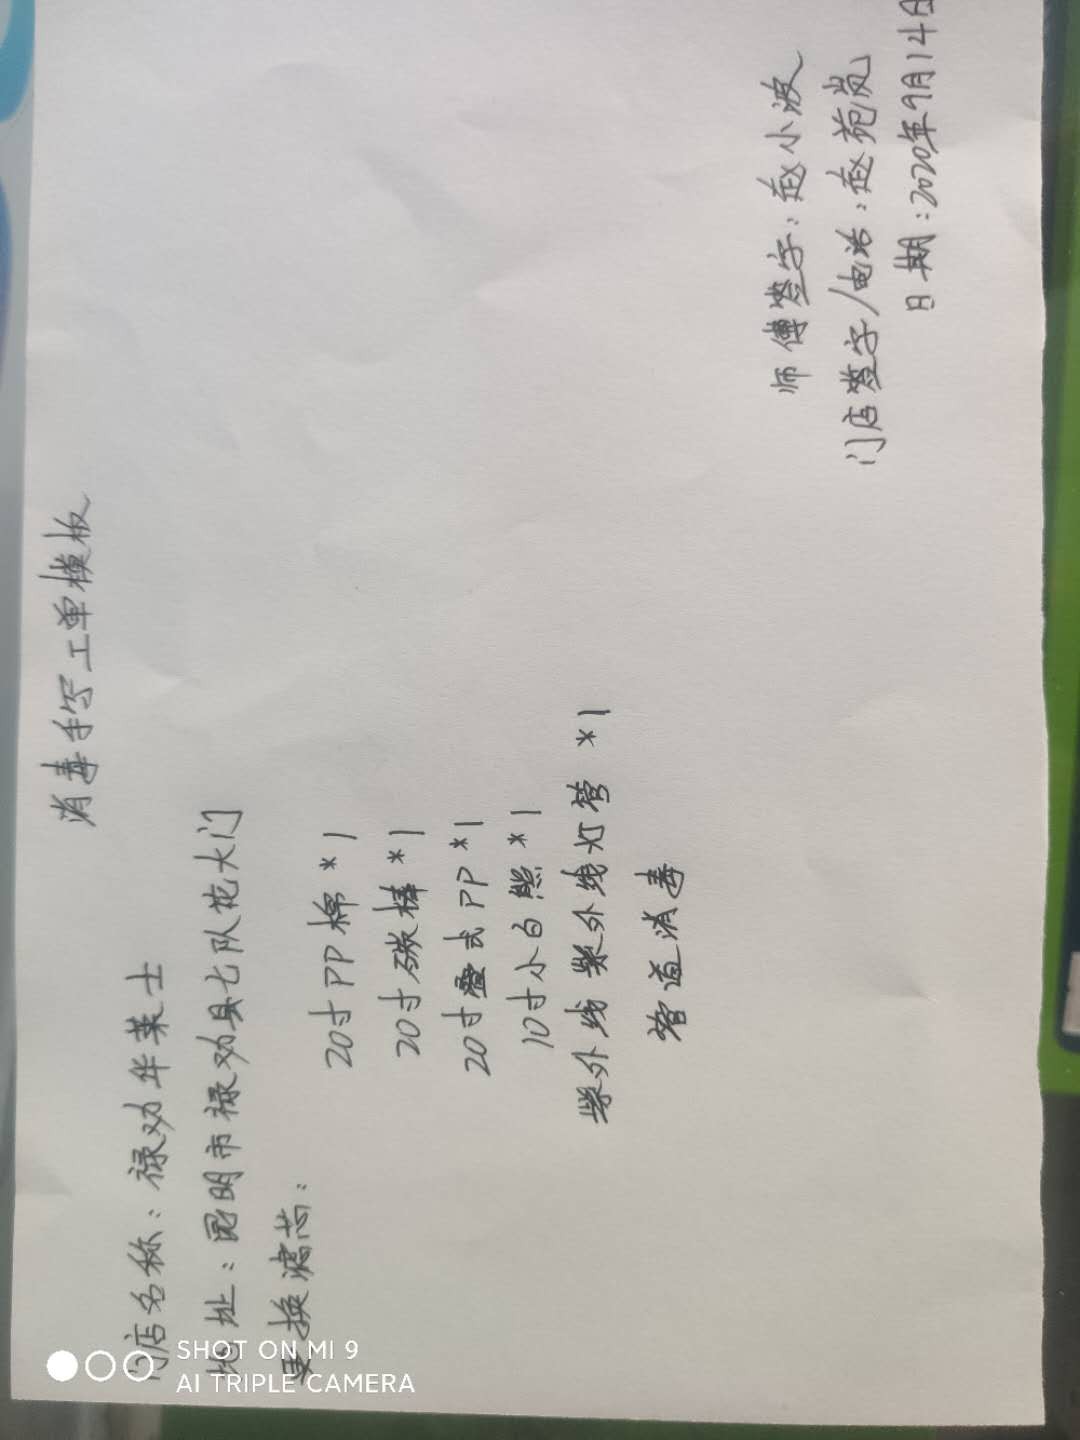 消毒手写工单模板
门店名称：禄劝华莱士
地址：昆明市禄劝县七队花大门
更换滤芯：
20寸PP棉*1
20寸碳棒*1
20寸叠式PP*1
10寸小白熊*1
紫外线紫外线灯管*1
管道消毒
师傅签字：赵小波
门店签字/电话：赵苑岚
日期：2020年9月14日
SHOT ON MI 9
AI TRIPLE CAMERA